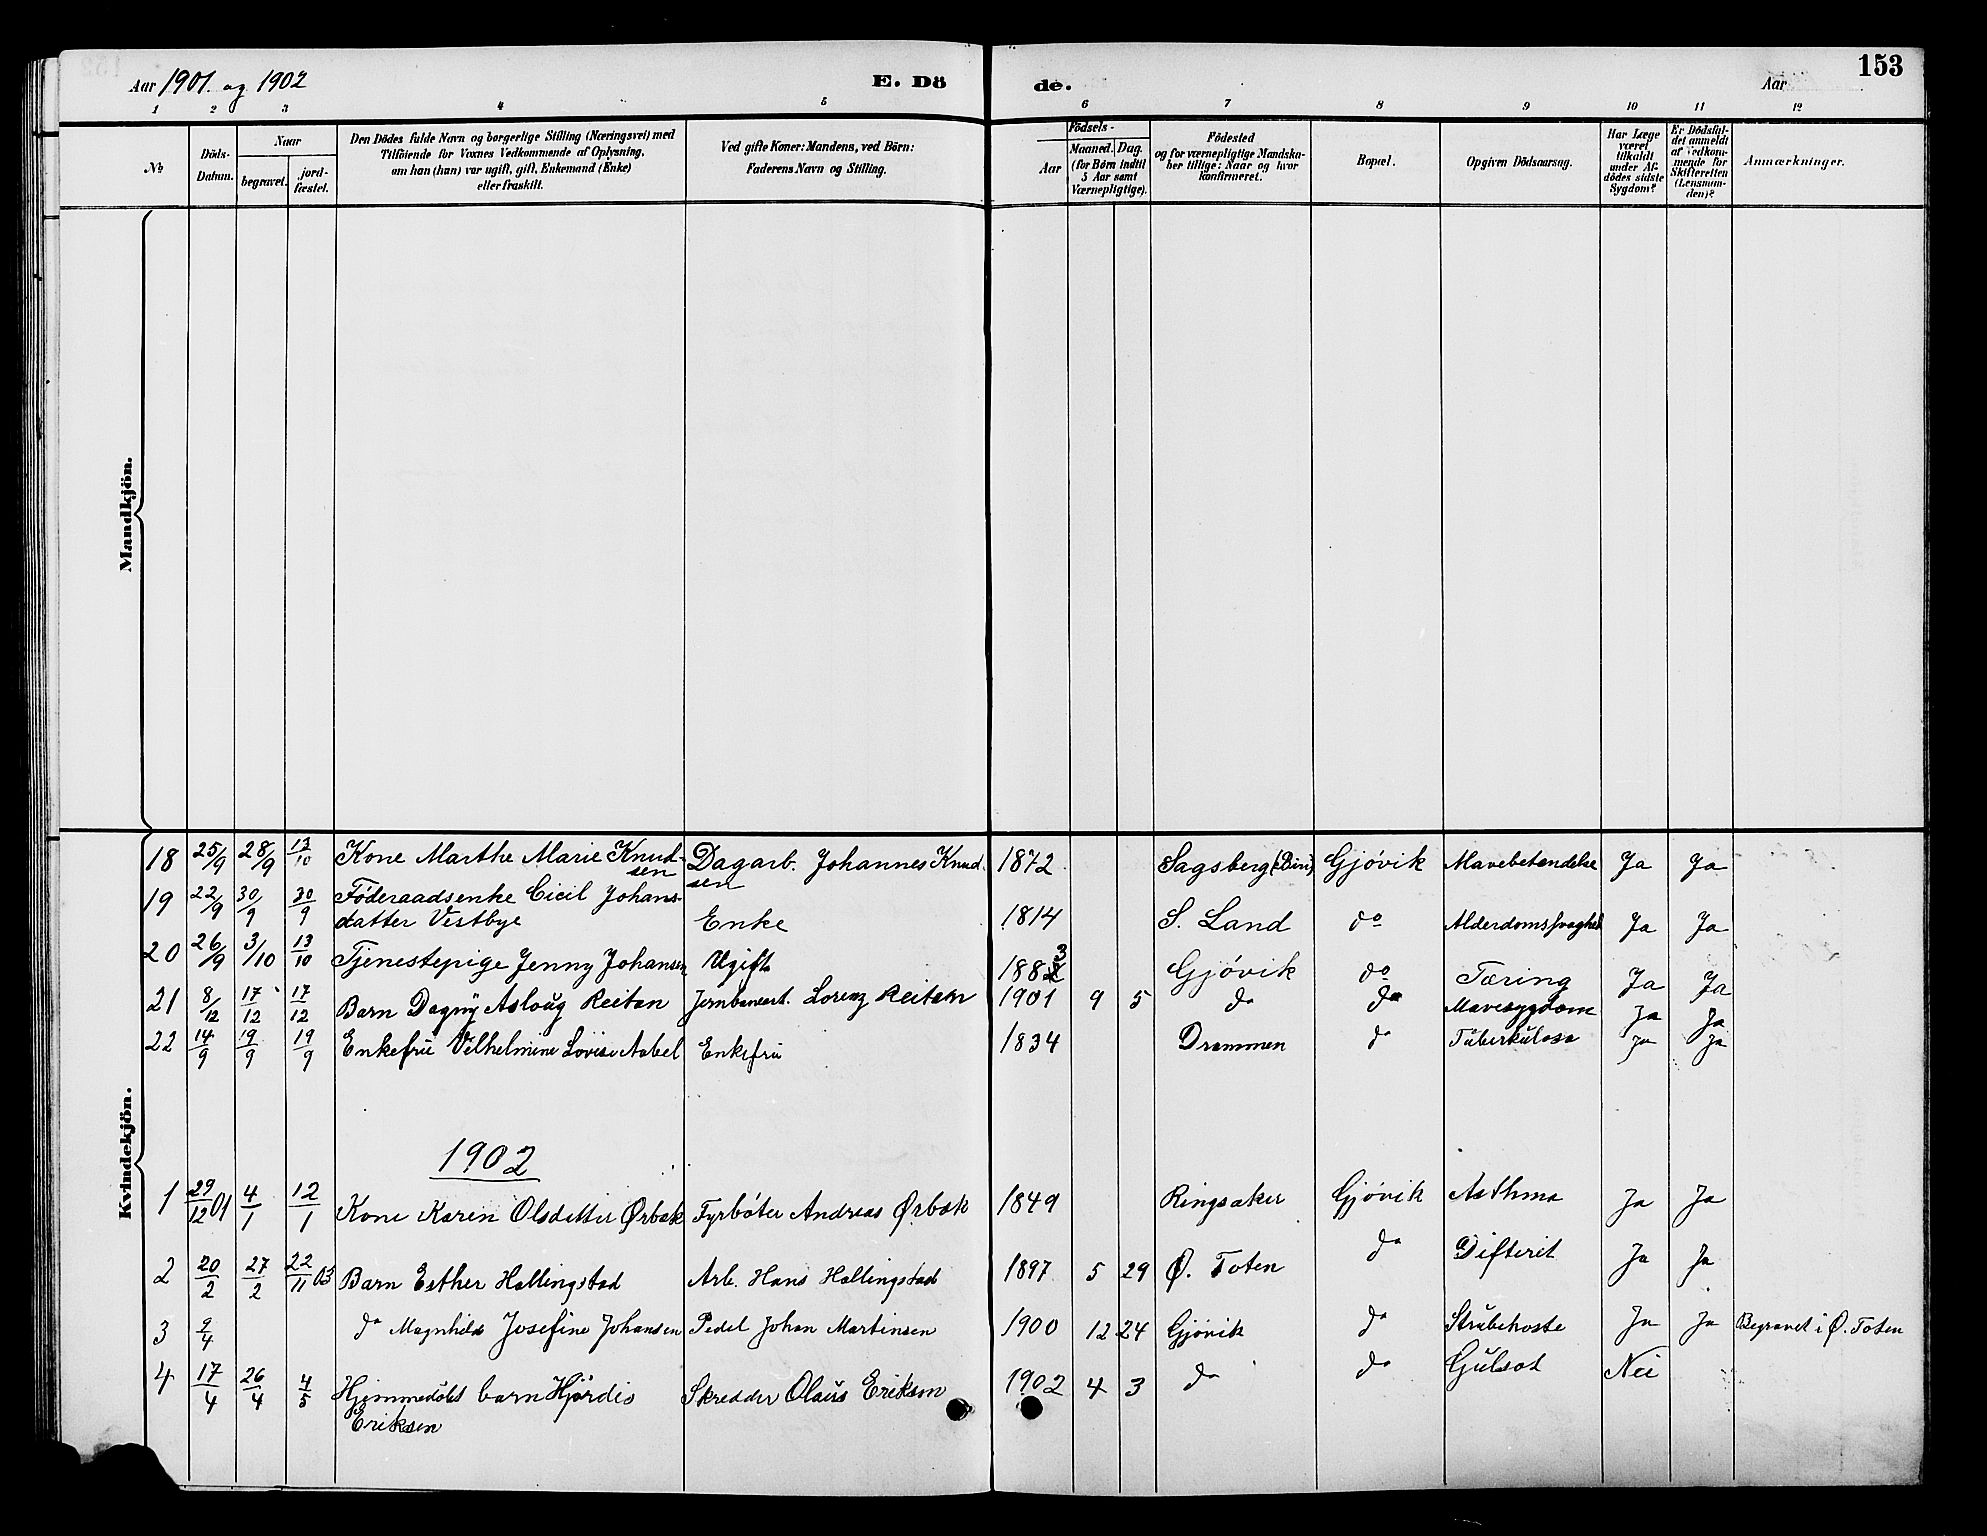 153
Aar 1901 og 1902 E. Dö de. Aar
1 2 3 4 5 6 7 8 9 10 11 12
No
Döds-Datum.
Naar
begravet.
jord-fæstet.
Den Dödes fulde Navn og borgerlige Stilling (Næringsvei) med
Tilföiende for Voxnes Vedkommende af Oplysning,
om han (hun) var ugift, gift, Enkemand (Enke)
eller fraskilt.
Ved gifte Koner: Mandens, ved Börn:
Faderens Navn og Stilling.
Födsels-
Aar
Maaned. Dag.
(for Börn indtil
5 Aar samt
Værnepligtige).
Födested
og for værnepligtige Mandska-
ber tillige: Naar og hvor
konfirmeret.
Bopæl.
Opgiven Dödsaarsag.
Har Læge
været
tilkaldt
under Af-
dödes sidste
Sygdom?
Er Dödsfal-
det anmeldt
af Vedkom-
mende for
Skifteretten
(Lensman-
den)?
Anmærkninger.
Mandkjön.
Kvindekjön.
18 25/9 28/9 13/10 Kone Marthe Marie Knud- Dagarb. Johannes Knud- 1872 Sagsberg (Biri) Gjövik Mavebetendelse Ja Ja
sen sen
19 22/9 30/9 30/9 Föderaadsenke Cicil Johans-
datter Vestbye Enke 1814 S. Land do Alderdomssvaghed Ja Ja
20 26/9 3/10 13/10 Tjenestepige Jenny Johansen Ugift 1883 Gjövik do Tæring Ja Ja
21 8/12 17/12 17/12 Barn Dagny Asloug Reitan Jernbanearb. Lorenz Reitan 1901 9 5 do do Mavesygdom Ja Ja
22 14/9 19/9 19/9 Enkefru Vilhelmine Lovise Aabel Enkefru 1834 Drammen do Tuberkulose Ja Ja
1902
1 29/12 01 4/1 12/1 Kone Karen Olsdatter Ørbæk Fyrböter Andreas Ørbæk 1849 Ringsaker Gjövik Asthma Ja Ja
2 20/2 27/2 22/11 03 Barn Esther Hallingstad Arb. Hans Hallingstad 1897 5 29 Ø. Toten do Difterit Ja Ja
3 9/4 do Magnhild Josefine Johansen Pedel Johan Martinsen 1900 12 24 Gjövik do Strubehoste Ja Ja Begravet i Ø. Toten
4 17/4 26/4 4/5 Hjemmedöbt barn Hjördis Skredder Olaus Eriksen 1902 4 3 do do Gulsot Nei
Eriksen